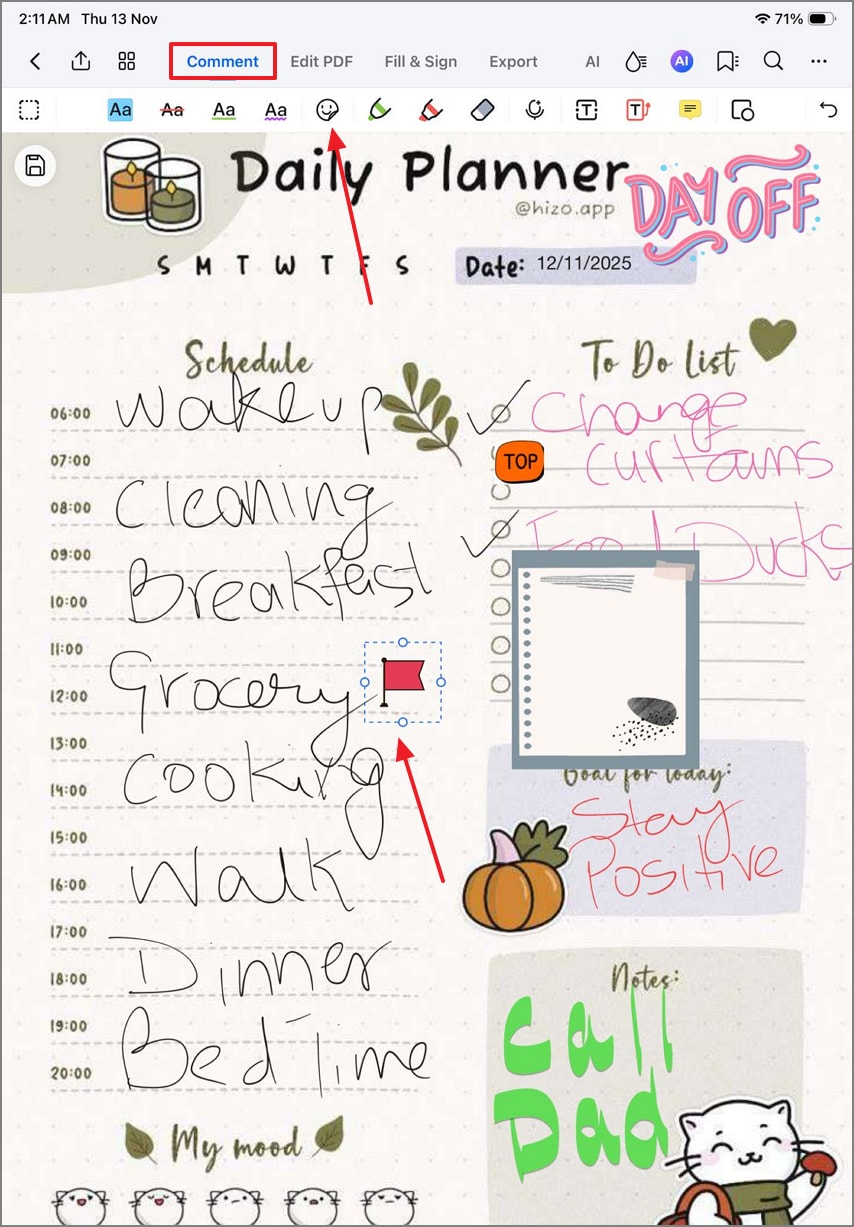 2:11 AM Thu 13 Nov
71%
Comment Edit PDF Fill & Sign Export AI AI
Aa Aa Aa Aa T T
Daily Planner
@hizo.app
DAY OFF
S M T W T F S
Date: 12/11/2025
Schedule
06:00 Wake up
07:00
08:00 Cleaning
09:00
10:00 Breakfast
11:00
12:00 Grocery
13:00
14:00 Cooking
15:00
16:00 Walk
17:00
18:00 Dinner
19:00
20:00 Bed Time
My mood
To Do List
Change
TOP
Curtains
Ducks
Goal for today:
Stay
Positive
Notes:
Call
Dad